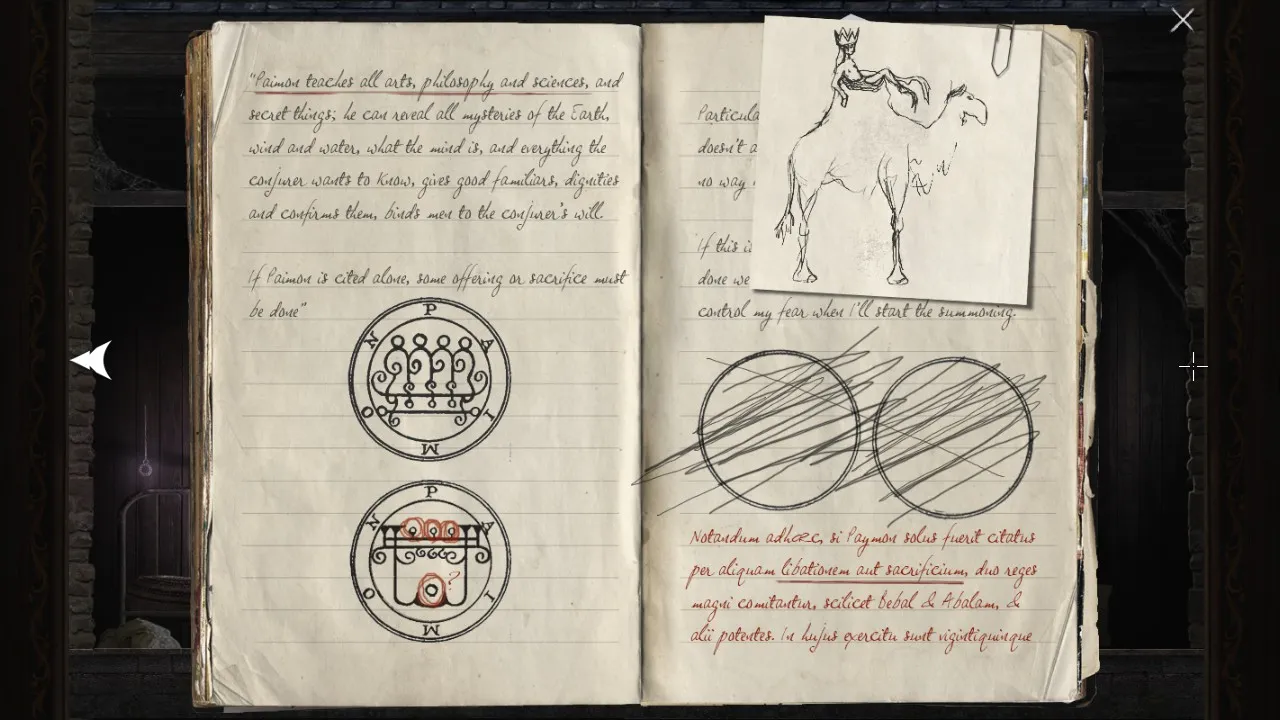 "Paimon teaches all arts, philosophy and sciences, and
secret things; he can reveal all mysteries of the Earth,
wind and water, what the mind is, and everything the
conjurer wants to know, gives good familiars, dignities
and confirms them, binds men to the conjurer's will.
If Paimon is cited alone, some offering or sacrifice must
be done"
P A I M O N
P A I M O N
?
doesn't
no way
If this
done we
control my fear when I'll start the summoning.
Notandum adhæc, si Paymon solus fuerit citatus
per aliquam libationem aut sacrificium, duo reges
magni comitantur, scilicet Bebal & Abalam, &
alii potentes. In hujus exercitu sunt vigintiquinque